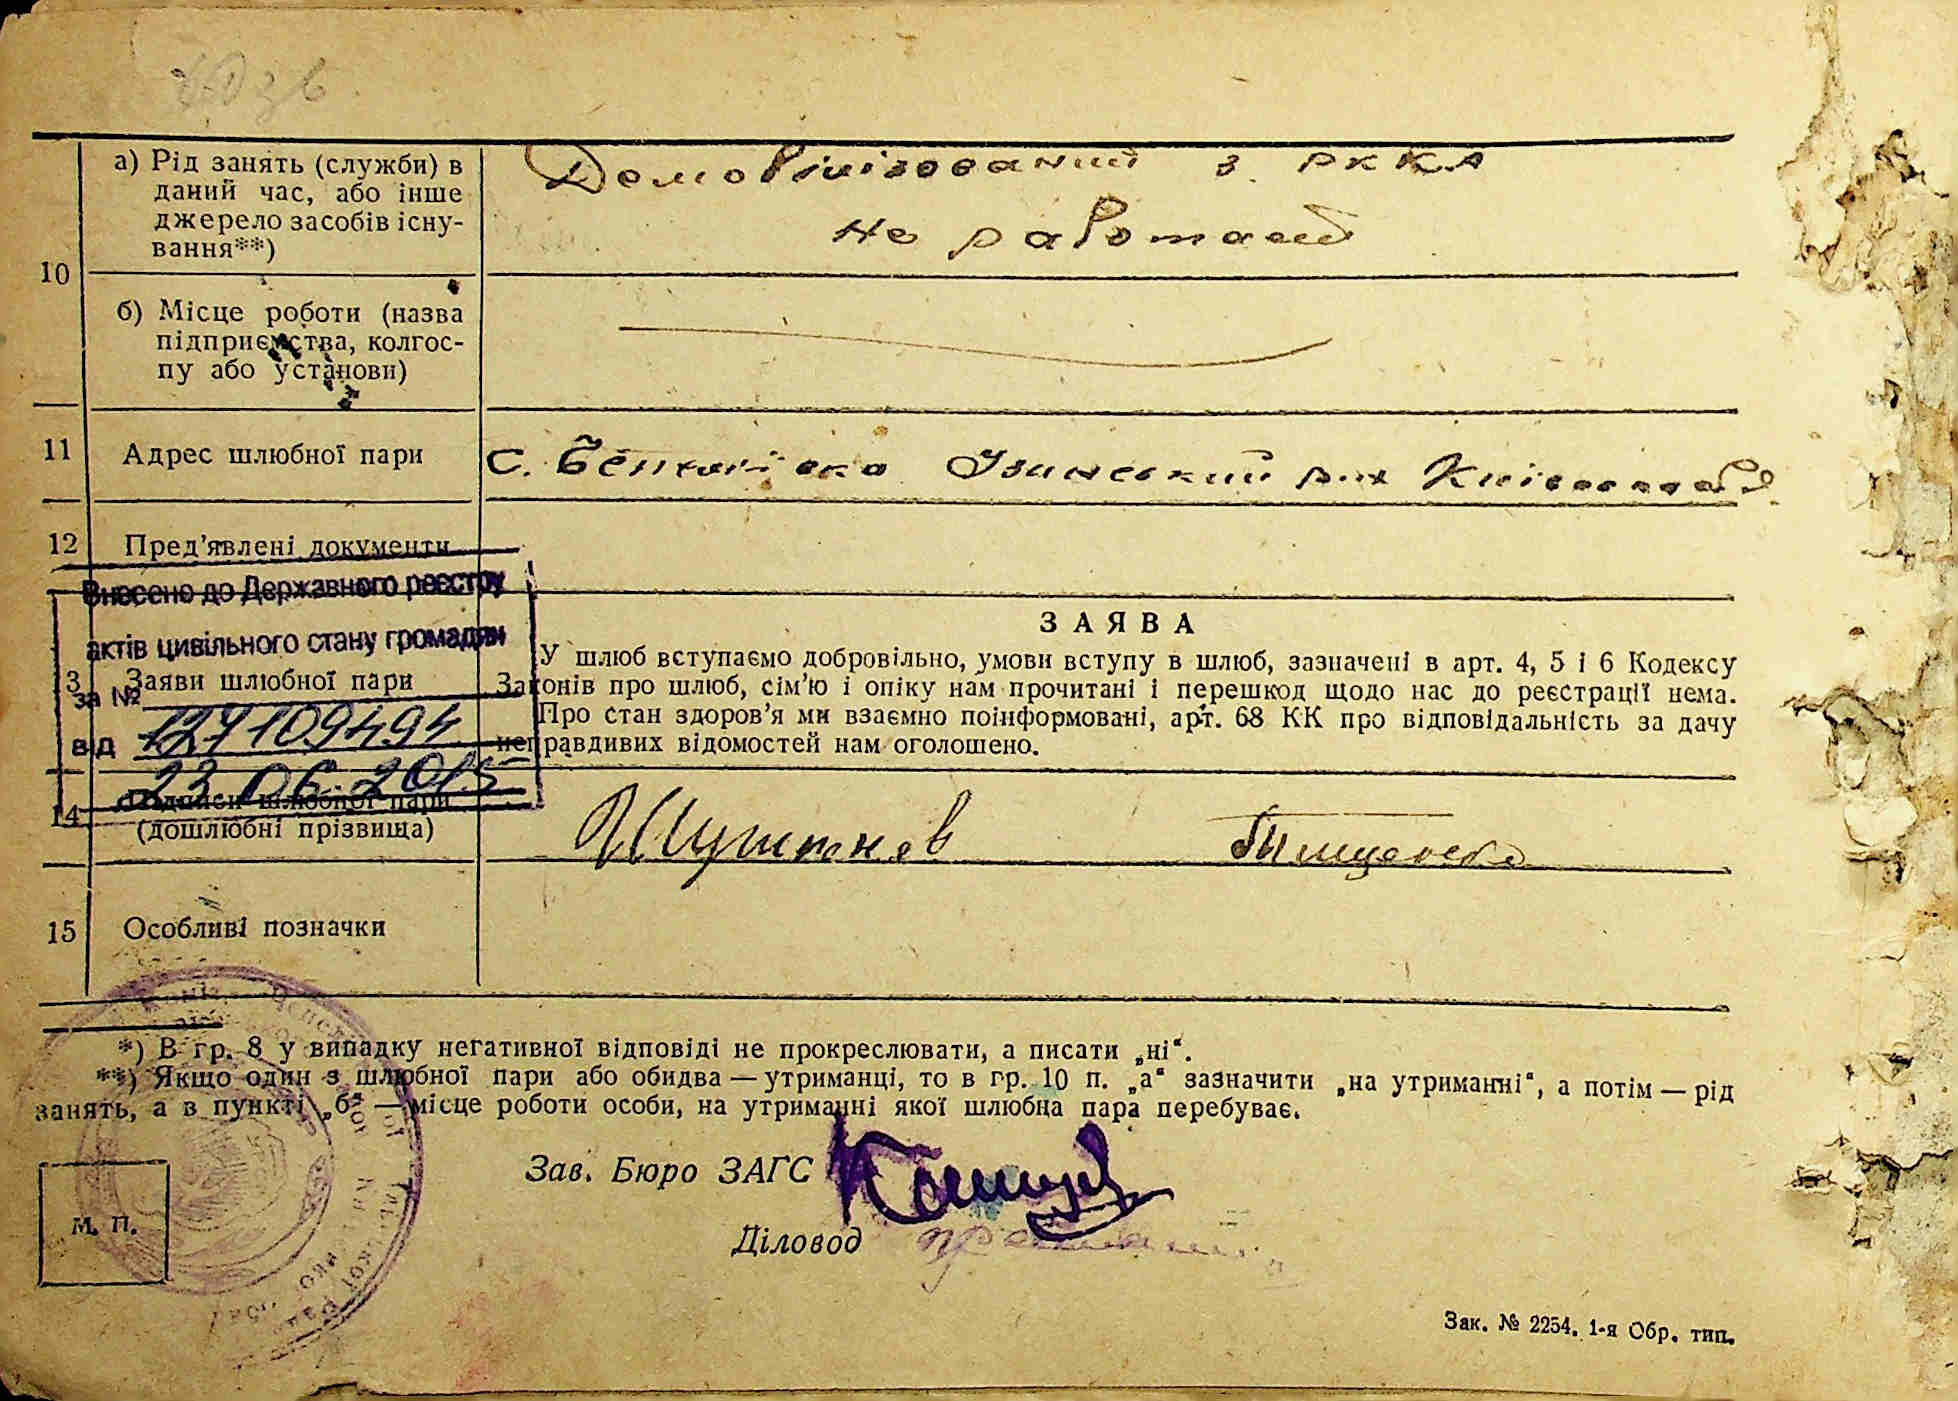 а) Рід занять (служби) в
даний час, або інше
джерело засобів існу-
вання**)
Демобілізований з РККА
не работает
10
б) Місце роботи (назва
підприємства, колгос-
пу або установи)
11 Адрес шлюбної пари
с. Узинський р-н
12 Пред’явлені документи
Внесено до Державного реєстру
актів цивільного стану громадян
за №
127109494
від
23.06.2015
3 Заяви шлюбної пари
ЗАЯВА
У шлюб вступаємо добровільно, умови вступу в шлюб, зазначені в арт. 4, 5 і 6 Кодексу
Законів про шлюб, сім’ю і опіку нам прочитані і перешкод щодо нас до реєстрації нема.
Про стан здоров’я ми взаємно поінформовані, арт. 68 КК про відповідальність за дачу
неправдивих відомостей нам оголошено.
14 Підписи шлюбної пари
(дошлюбні прізвища)
15 Особливі позначки
*) В гр. 8 у випадку негативної відповіді не прокреслювати, а писати „ні“.
**) Якщо один з шлюбної пари або обидва — утриманці, то в гр. 10 п. „а“ зазначити „на утриманні“, а потім — рід
занять, а в пункті „б“ — місце роботи особи, на утриманні якої шлюбна пара перебуває.
Зав. Бюро ЗАГС
Діловод
М. П.
Зак. № 2254. 1-я Обр. тип.